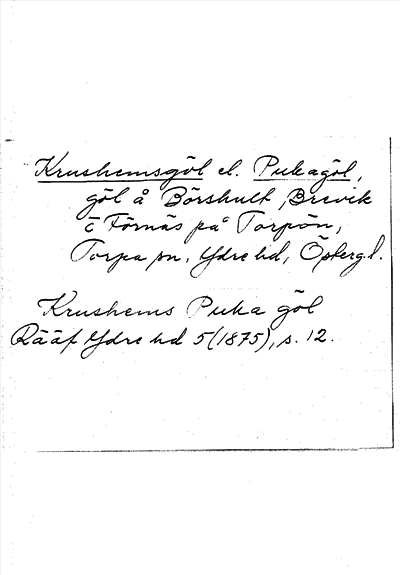 Krushemsgöl el. Pukagöl,
göl å Börshult, Brevik
o Förnäs på Torpön,
Torpa sn. Ydre hd, Östergl.
Krushems Puka göl
Rääf Ydre hd 5(1875), s. 12.